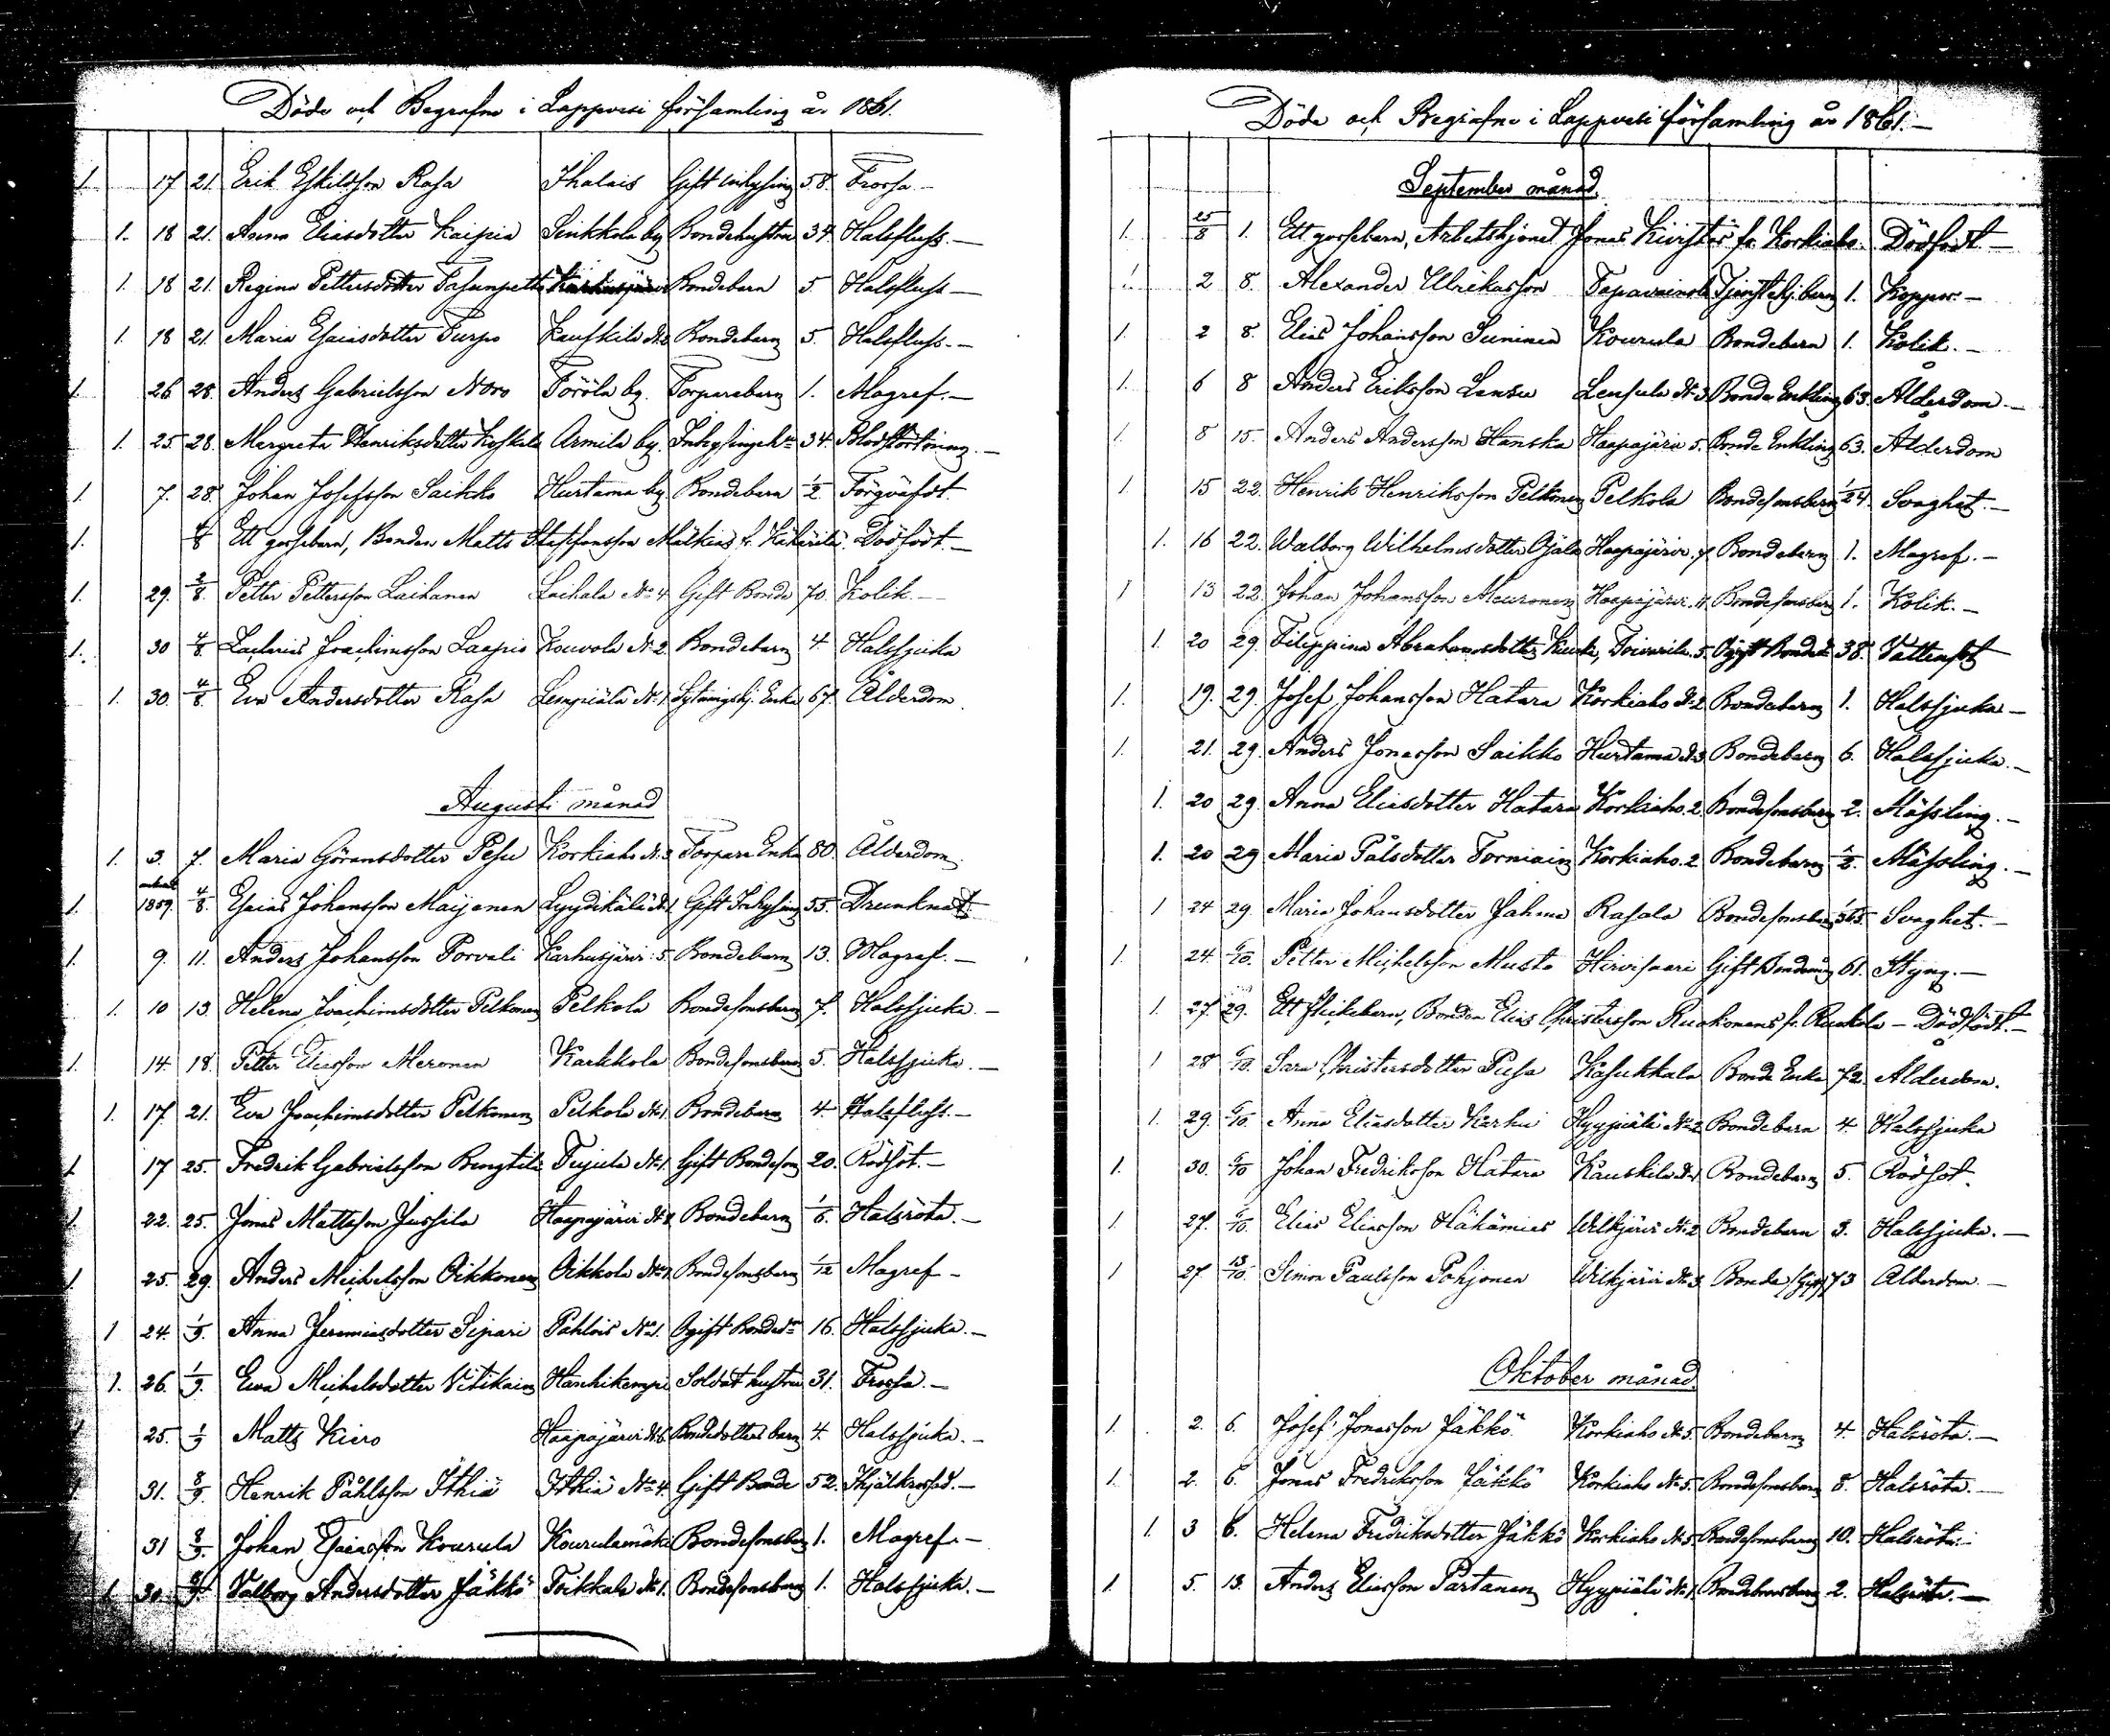 Döde och Begrafne i Lappvesi församling år 1861.
1. 17 21. Erik Eskilsson Rasa Ihalais Gift inhysing 58. Frossa.—
1. 18 21. Anna Eliasdotter Kaipia Simkkola by Bondehustru 34. Halsfluss.—
1. 18 21. Regina Pettersdotter Bondebarn 5 Halsfluss—
1. 18 21. Maria Esaiasdotter Turpo Kauskila Bondebarn 5. Halsfluss.—
1. 26 28. Anders Gabrielsson Noro Töröla by. Torparebarn 1. Magref.—
1. 25. 28. Margreta Henriksdotter Koskela Armila by. 34. Blodstörtning.—
1. 7. 28. Johan Josefsson Saikko Hurtama by. Bondebarn 1/2. Förqväfdt.
1. 4/8 Ett gossebarn, Bonden Matts Staffansson fr. Dödfödt.—
1. 29. 2/8. Petter Pettersson Laihanen Laihala No 4 Gift Bonde 70. Kolik.—
1. 30 4/8. Zacharias Joachimsson Laapio Kouvola No 2 Bondebarn 4. Halssjuka
1. 30. 4/8. Eva Andersdotter Rasa Lempiälä No 1 Enka 67. Ålderdom.
Augusti månad
1. 3. 7. Maria Göransdotter Pesu Korkiaho No 3 Torpare Enka 80. Ålderdom.
1. 1859. 4/8. Esaias Johansson Maijanen Gift Inhysing 55. Drunknat.
1. 9. 11. Anders Johansson Porvali Karhusjärvi 5. Bondebarn 13. Magref.—
1. 10 13. Helena Joachimsdotter Pelkonen Pelkola Bondesonsbarn 7. Halssjuka.—
1. 14 18. Petter Eliasson Meronen Karkkola Bondesonsbarn 5. Halssjuka.—
1. 17. 21. Eva Joachimsdotter Pelkonen Pelkola No 1. Bondebarn 4. Halsfluss.—
1. 17 25. Fredrik Gabrielsson Tujula No 1. Gift Bondeson 20. Rödsot.—
1. 22. 25. Jonas Mattsson Jussila Haapajärvi No Bondebarn 1/6. Halsröta.—
1. 25. 29. Anders Michelsson Oikkonen Oikkola No 1. Bondesonsbarn 1/12 Magref—
1 24. 1/9. Anna Jeremiasdotter Sipari Pahlois No 1. Ogift 16. Halssjuka.—
1. 26. 1/9. Eva Michelsdotter Vitikain Hanhikempi Soldathustru 31. Frossa.—
1 25. 1/9 Matts Kiero Haapajärvi No 6. Bondedotters barn 4. Halssjuka.—
1 31. 8/9. Henrik Påhlsson Ithiä Ithiä No 4. Gift Bonde 52. Ihjälkrossad.—
1 31 8/9. Johan Esaiasson Kourula Kourulamäki Bondesonsbarn 1. Magref.—
1. 30. Valborg Andersdotter Jäkkö Toikkala No 1. Bondesonsbarn 1. Halssjuka.—
Döde och Begrafne i Lappvesi församling år 1861.—
September månad.
1. 25/8 1. Ett gossebarn, Arbetskjonet Jonas fr. Korkiaho. Dödfödt.—
1. 2 8. Alexander Ulrikasson Tapavainola 1. Koppor.—
1. 2 8. Elias Johansson Suninen Kourula Bondebarn 1. Kolik.—
1. 6 8 Anders Eriksson Lensu Lensula No 3. Bonde Enkling 63. Ålderdom.—
1. 8 15. Anders Andersson Hanska Haapajärvi 5. Bonde Enkling 63. Ålderdom
1 15 22. Henrik Henriksson Pelkonen Pelkola Bondesonsbarn 1/24. Svaghet.—
1. 16 22. Walborg Wilhelmsdotter Ojala Haapajärvi 7 Bondebarn 1. Magref.—
1 13 22. Johan Johansson Meuronen Haapajärvi 11. Bondesonsbarn 1. Kolik.—
1. 20 29. Filippina Abrahamsdotter Kuuk, Toivarila 5. Ogift 38. Vattusot
1. 19. 29. Josef Johansson Hatara Korkiaho No 2 Bondebarn 1. Halssjuka—
1. 21. 29. Anders Jonasson Saikko Hurtama No 3 Bondebarn 6. Halssjuka.—
1. 20 29 Anna Eliasdotter Hatara Korkiaho 2. Bondesonsbarn 2. Mässling.—
1. 20 29 Maria Pålsdotter Torniain Korkiaho 2 Bondebarn 1/2. Mässling.—
1 24 29. Maria Johansdotter Rasala Bondesonsbarn Svaghet.—
1. 24 6/10. Petter Michelsson Musto Hirvisaari Gift 61. Styng.—
1. 27. 29. Ett flickebarn, Bonden Elias Christersson Ruohonens fr. Ruohola — Dödfödt.—
1 28 6/10. Sara Christersdotter Pusa Kasukkala Bonde Enka 72 Ålderdom.
1. 29. 6/10. Anna Eliasdotter Karhu Hyypiälä No 2 Bondebarn 4. Halssjuka
1. 30. 6/10 Johan Fredriksson Hatara Kauskila No 1 Bondebarn 5. Rödsot.
1. 27. 6/10 Elias Eliasson Hähämies Wilkjärvi No 2 Bondebarn 3. Halssjuka.—
1 27 13/10. Simon Paulsson Pohjonen Wilkjärvi No 3. Bonde (Gift) 73 Ålderdom.—
Oktober månad.
1. 2. 6. Josef Jonasson Jäkkö. Korkiaho No 5. Bondebarn 4. Halsröta.—
1. 2. 6. Jonas Fredriksson Jäkkö Korkiaho No 5. Bondesonsbarn 8. Halsröta.—
1. 3 6. Helena Fredriksdotter Jäkkö Korkiaho No 5. Bondesonsbarn 10. Halsröta.—
1. 5. 13. Anders Eliasson Partanen Hyypiälä No 1 Bondesonsbarn 2. Halsröta.—